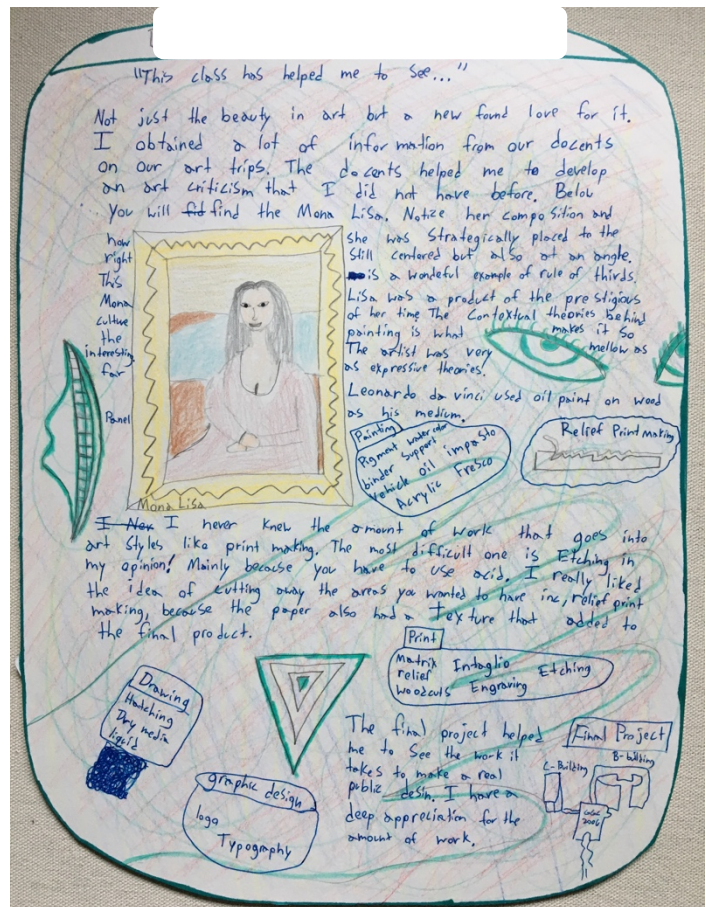 "This class has helped me to see..."
Not just the beauty in art but a new found love for it.
I obtained a lot of information from our docents
on our art trips. The docents helped me to develop
an art criticism that I did not have before. Below
You will fid find the Mona Lisa. Notize her composition and
how she was strategically placed to the
right still centered but also at an angle.
This is a wondeful example of rule of thirds.
Mona Lisa was a product of the prestigious
culture of her time The Contextual theories behind
the painting is what makes it so
interesting The artist was very mellow as
far as expressive theories.
Leonardo da vinci used oil paint on wood
Panel as his medium.
Mona Lisa
Painting
Pigment water color
binder support
vehicle oil impasto
Acrylic Fresco
Relief Print Making
I Nev I never knew the amount of work that goes into
art styles like print making. The most difficult one is Etching in
my opinion! Mainly because you have to use acid. I really liked
the idea of cutting away the areas you wanted to have inc, relief print
making, because the paper also had a texture that added to
the final product.
Print
Matrix Intaglio Etching
relief
woodcuts Engraving
Drawing
Hatching
Dry media
liquid
graphic design
logo
Typography
The final project helped
me to see the work it
takes to make a real
public desin. I have a
deep appreciation for the
amount of work.
Final Project
C-Building
B-building
2006